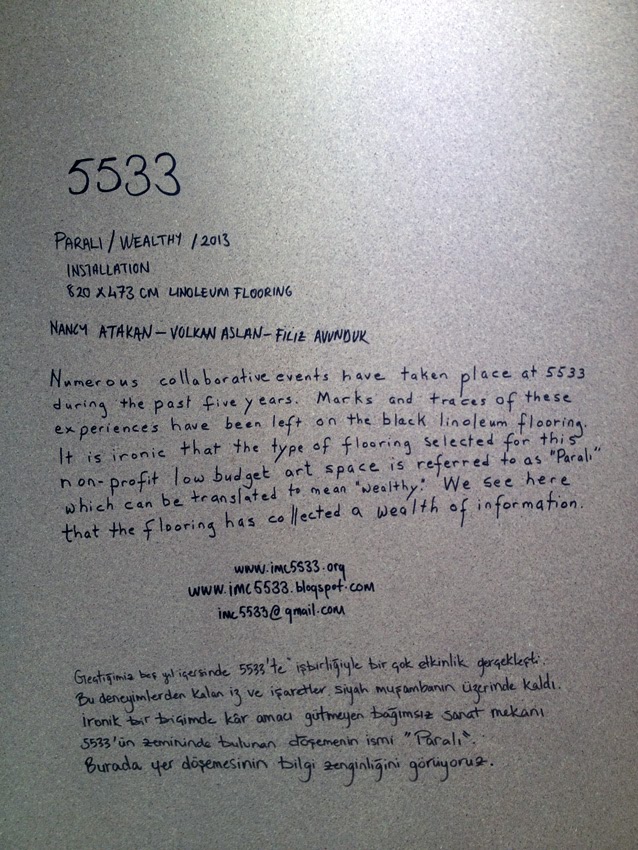 5533
PARALI / WEALTHY / 2013
INSTALLATION
820 X 473 CM LINOLEUM FLOORING
NANCY ATAKAN – VOLKAN ASLAN – FİLİZ AVUNDUK
Numerous collaborative events have taken place at 5533
during the past five years. Marks and traces of these
experiences have been left on the black linoleum flooring.
It is ironic that the type of flooring selected for this
non-profit low budget art space is referred to as "Paralı"
which can be translated to mean "wealthy." We see here
that the flooring has collected a wealth of information.
www.imc5533.org
www.imc5533.blogspot.com
imc5533@gmail.com
Geçtiğimiz beş yıl içersinde 5533'te işbirliğiyle bir çok etkinlik gerçekleşti.
Bu deneyimlerden kalan iz ve işaretler siyah muşambanın üzerinde kaldı.
İronik bir biçimde kâr amacı gütmeyen bağımsız sanat mekanı
5533'ün zemininde bulunan döşemenin ismi "Paralı".
Burada yer döşemesinin bilgi zenginliğini görüyoruz.